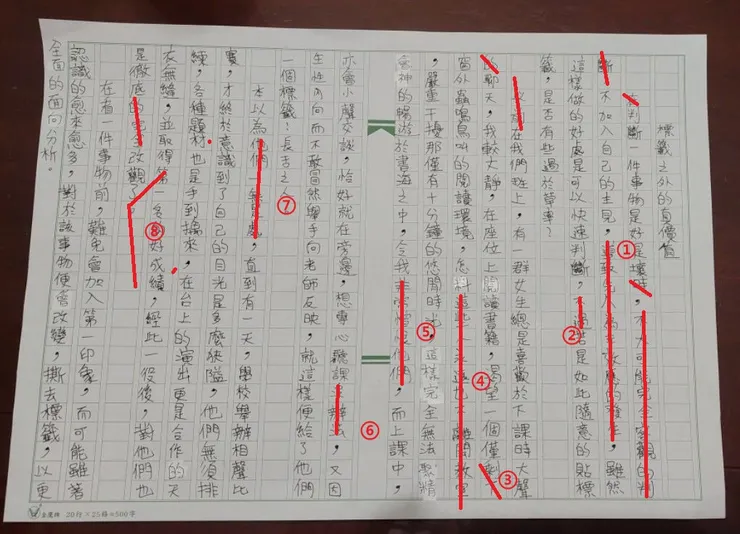 標籤之外的真價值
在判斷一件事物是好是壞時，不大可能完全客觀的判
斷，不加入自己的主見，導致先入為主效應的發生，雖然
這樣做的好處是可以快速判斷，不過若是如此隨意的貼標
籤，是否有些過於草率？
在我們班上，有一群女生總是喜歡於下課時大聲
的聊天，我較文靜，在座位上閱讀書籍，渴望一個僅剩
窗外蟲鳴鳥叫的閱讀環境，怎料這些人永遠也不離開教室
，嚴重干擾那僅有十分鐘的悠閒時光，這樣完全無法聚精
會神的暢遊於書海之中，令我非常他們，而上課中，
亦會小聲交談，恰好就在旁邊，想專心聽課沒辦法，又因
生性內向而不敢冒然舉手向老師反映，就這樣便給了他們
一個標籤：長舌之人
本以為他們一無是處，直到有一天，學校舉辦相聲比
賽，才終於意識到了自己的目光是多麼狹隘，他們無須排
練，各種題材也是手到擒來，在台上的演出更是合作的天
衣無縫，並取得第一名好成績，經此一役後，對他們也
是徹底的完全改觀了。
在看一件事物前，難免會加入第一印象，而可能雖著
認識的愈來愈多，對於該事物便會改變，撕去標籤，以更
全面的面向分析。
①
②
③
④
⑤
⑥
⑦
⑧
20行×25格=500字